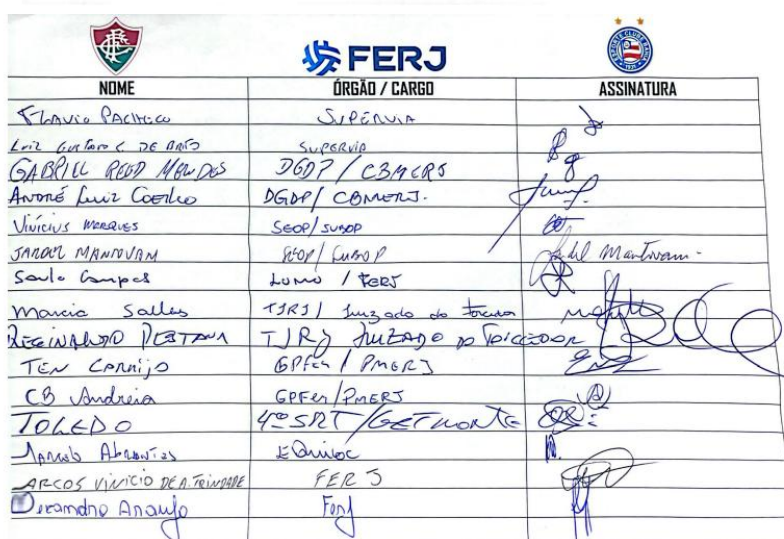 FERJ
NOME ÓRGÃO / CARGO ASSINATURA
FLAVIO PACHECO SUPERVIA
LUIZ GUSTAVO C. DE SUPERVIA
GABRIEL REGO MENDES DGDP / CBMERJ
ANDRÉ LUIZ COELHO DGDP/ CBMERJ.
VINÍCIUS MARQUES SEOP/SUBOP
JARDEL MANTOVANI SEOP/SUBOP Jardel Mantovani
Saulo Campos / FERJ
Marcia Salles TJRJ/ Juizado do Torcedor
REGINALDO PESTANA TJRJ JUIZADO DO TORCEDOR
TEN CARRIJO GPFer / PMERJ
CB Andreia GPFer/PMERJ
TOLEDO 4ª SRT/GETNORTE
Marcelo
ARCOS VINICIO DE A. TRINDADE FERJ
Alexandre Araujo Ferj